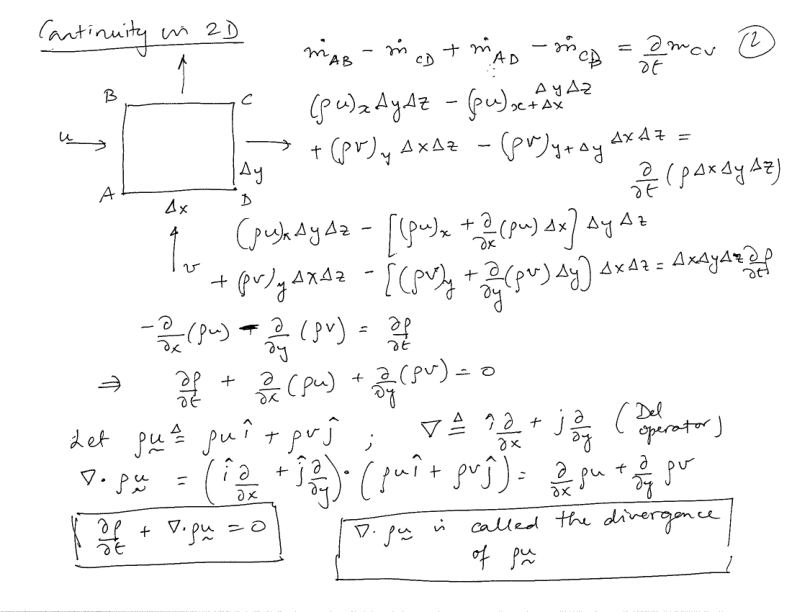 Continuity in 2D
ṁ_AB - ṁ_CD + ṁ_AD - ṁ_CB = ∂/∂t m_CV (2)
B C
(ρu)_x Δy Δz - (ρu)_x+Δx Δy Δz
u
+ (ρv)_y Δx Δz - (ρv)_y+Δy Δx Δz =
∂/∂t (ρ Δx Δy Δz)
Δy
A D
Δx
(ρu)_x Δy Δz - [(ρu)_x + ∂/∂x (ρu) Δx] Δy Δz
v
+ (ρv)_y Δx Δz - [(ρv)_y + ∂/∂y (ρv) Δy] Δx Δz = Δx Δy Δz ∂ρ/∂t
-∂/∂x (ρu) - ∂/∂y (ρv) = ∂ρ/∂t
⇒ ∂ρ/∂t + ∂/∂x (ρu) + ∂/∂y (ρv) = 0
Let ρṵ ≜ ρu î + ρv ĵ ; ∇ ≜ î ∂/∂x + j ∂/∂y (Del operator)
∇·ρṵ = (î ∂/∂x + ĵ ∂/∂y)·(ρu î + ρv ĵ) = ∂/∂x ρu + ∂/∂y ρv
∂ρ/∂t + ∇·ρṵ = 0
∇·ρṵ is called the divergence
of ρṵ